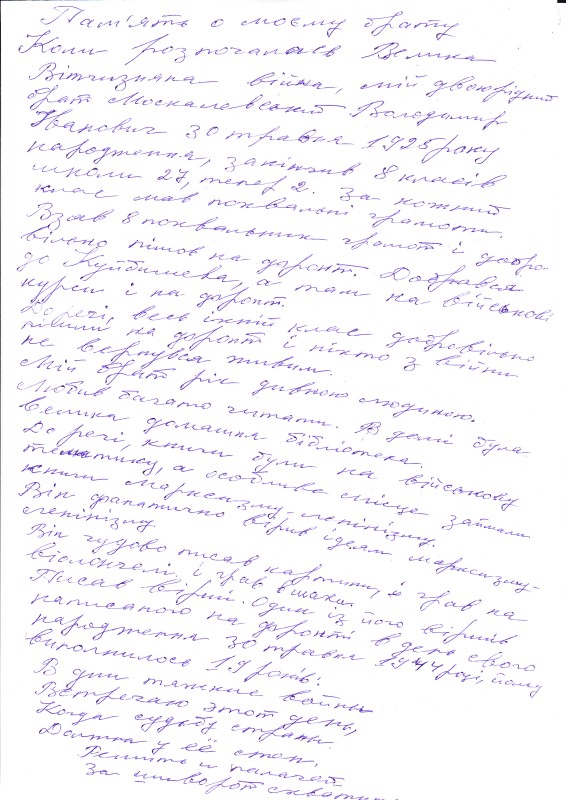 Пам'ять о моєму брату
Коли розпочалась Велика
Вітчизняна війна, мій двоюрідний
брат Москалевський Володимир
Іванович 30 травня 1925 року
народження, закінчив 8 класів
школи 27, тепер 2. За кожний
клас мав похвальні грамоти.
Взяв 8 похвальних грамот і добро-
вільно пішов на фронт. Добрався
до Куйбишева, а там на військові
курси і на фронт.
До речі, весь їхній клас добровільно
пішли на фронт і ніхто з війни
не вернувся живим.
Мій брат ріс дивною людиною.
Любив багато читати. В домі була
велика домашня бібліотека.
До речі, книги були на військову
тематику, а особливе місце займали
книги марксизму-ленінізму.
Він фанатично вірив ідеям марксизму-
ленінізму.
Він чудово писав картини, і грав на
віолончелі і грав в шахи.
Писав вірші. Один із його віршів
написаного на фронті в день свого
народження 30 травня 1944 році, йому
виповнилось 19 років.
В дни тяжкие войны
Встречаю этот день,
Когда судьбу страны
Должна у её стен,
Решить и палачей
За шиворот схватить